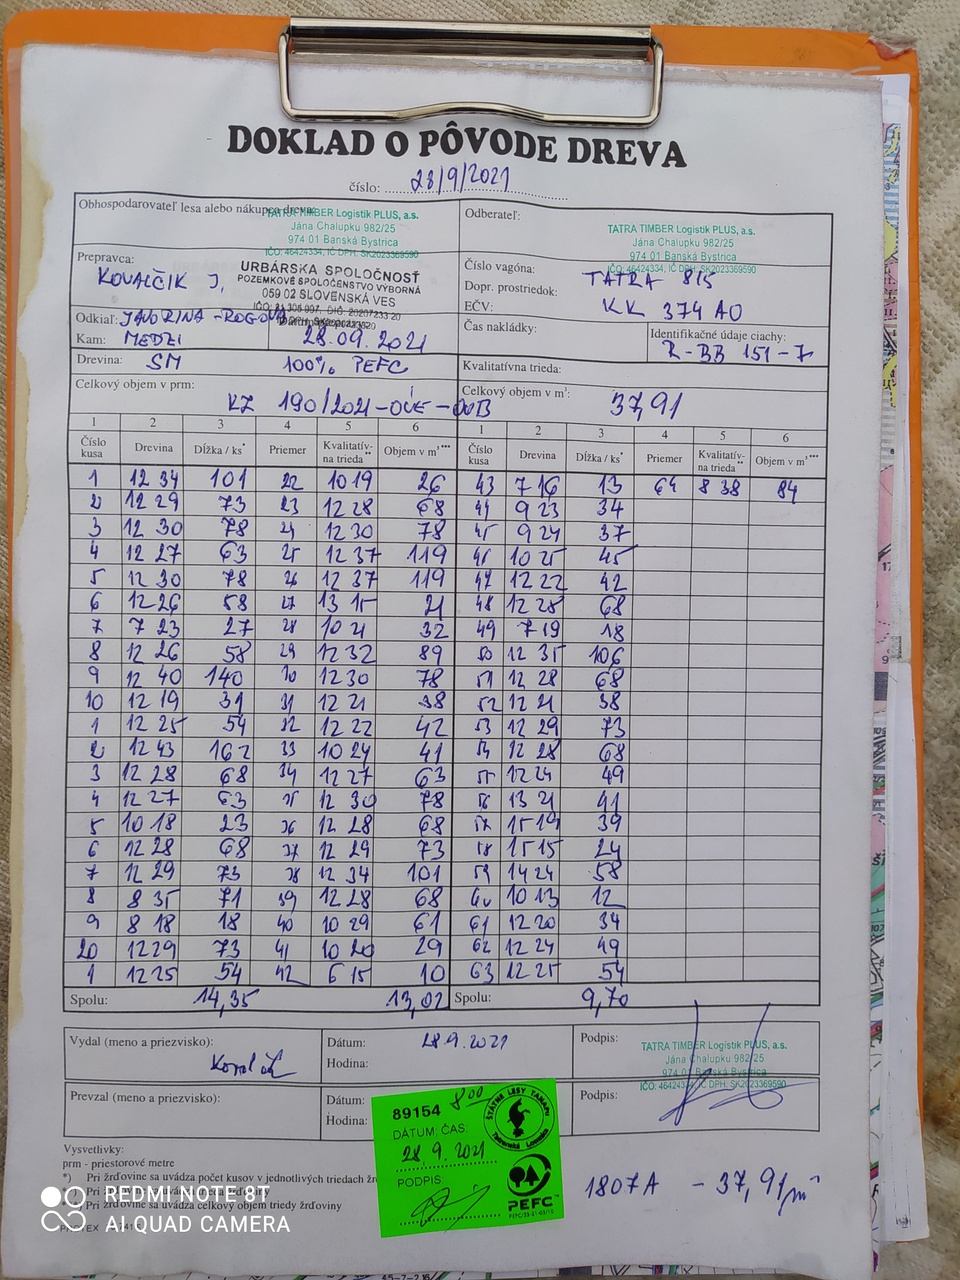 DOKLAD O PÔVODE DREVA
číslo: 28/9/2021
Obhospodarovateľ lesa alebo nákupca dreva:
TATRA TIMBER Logistik PLUS, a.s.
Jána Chalupku 982/25
974 01 Banská Bystrica
IČO: 46424334, IČ DPH: SK2023369590
Odberateľ:
TATRA TIMBER Logistik PLUS, a.s.
Jána Chalupku 982/25
974 01 Banská Bystrica
IČO: 46424334, IČ DPH: SK2023369590
Prepravca:
KOVALČIK J.
URBÁRSKA SPOLOČNOSŤ
POZEMKOVÉ SPOLOČENSTVO VÝBORNÁ
059 02 SLOVENSKÁ VES
Číslo vagóna:
Dopr. prostriedok: TATRA 815
EČV: KK 374 AO
Odkiaľ: JAVORINA - ROGOVA
Kam: MEDZI 28.09.2021
Čas nakládky:
Identifikačné údaje ciachy:
R-BB 151-7
Drevina: SM 100% PEFC
Kvalitatívna trieda:
Celkový objem v prm:
KZ 190/2021-OÚE-OÚB
Celkový objem v m³: 37,91
1 2 3 4 5 6 1 2 3 4 5 6
Číslo kusa Drevina Dĺžka / ks* Priemer Kvalitatív-na trieda** Objem v m³*** Číslo kusa Drevina Dĺžka / ks* Priemer Kvalitatív-na trieda** Objem v m³***
1 12 34 101 22 10 19 26 43 7 16 13 64 8 38 84
2 12 29 73 23 12 28 68 44 9 23 34
3 12 30 78 24 12 30 78 45 9 24 37
4 12 27 63 25 12 37 119 46 10 25 45
5 12 30 78 26 12 37 119 47 12 22 42
6 12 26 58 27 13 15 21 48 12 28 68
7 7 23 27 28 10 21 32 49 7 19 18
8 12 26 58 29 12 32 89 50 12 35 106
9 12 40 140 30 12 30 78 51 12 28 68
10 12 19 31 31 12 21 38 52 12 21 38
1 12 25 54 32 12 22 42 53 12 29 73
2 12 43 162 33 10 24 41 54 12 28 68
3 12 28 68 34 12 27 63 55 12 24 49
4 12 27 63 35 12 30 78 56 13 21 41
5 10 18 23 36 12 28 68 57 15 19 39
6 12 28 68 37 12 29 73 58 15 15 24
7 12 29 73 38 12 34 101 59 14 24 58
8 8 35 71 39 12 28 68 60 10 13 12
9 8 18 18 40 10 29 61 61 12 20 34
20 12 29 73 41 10 20 29 62 12 24 49
1 12 25 54 42 6 15 10 63 12 25 54
Spolu: 14,35 13,02 Spolu: 9,70
Vydal (meno a priezvisko):
Dátum: 28.9.2021
Hodina:
Podpis:
TATRA TIMBER Logistik PLUS, a.s.
Jána Chalupku 982/25
974 01 Banská Bystrica
IČO: 46424334, IČ DPH: SK2023369590
Prevzal (meno a priezvisko):
Dátum:
Hodina:
Podpis:
89154 800
DÁTUM, ČAS:
28 9. 2021
PODPIS:
ŠTÁTNE LESY TANAPu
Tatranská Lomnica
PEFC
Vysvetlivky:
prm - priestorové metre
*) Pri žrďovine sa uvádza počet kusov v jednotlivých triedach
Pri
Pri žrďovine sa uvádza celkový objem triedy žrďoviny
1807A - 37,91
REDMI NOTE 8T
AI QUAD CAMERA